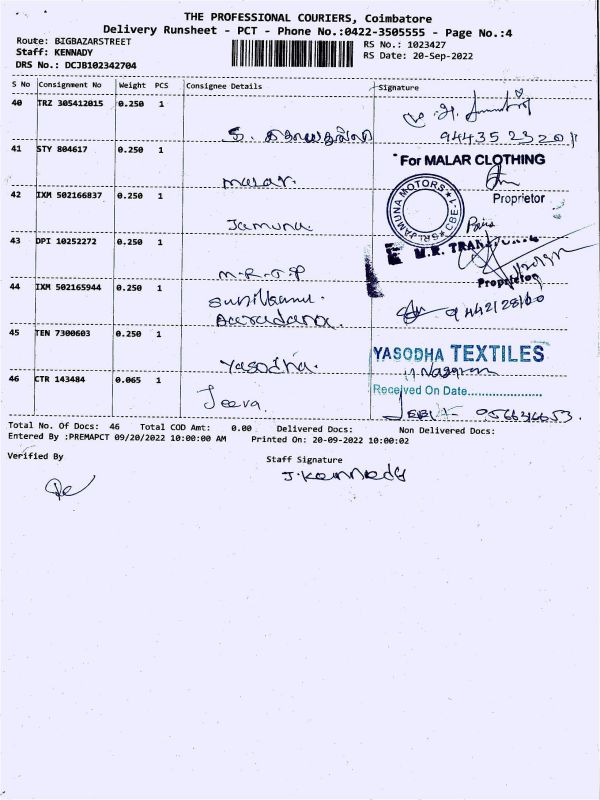 THE PROFESSIONAL COURIERS, Coimbatore
Delivery Runsheet - PCT - Phone No.:0422-3505555 - Page No.:4
Route: BIGBAZARSTREET
RS No.: 1023427
Staff: KENNADY
RS Date: 20-Sep-2022
DRS No.: DCJB102342704
S No Consignment No Weight PCS Consignee Details Signature
40 TRZ 305412015 0.250 1
94435 23201
41 STY 804617 0.250 1
For MALAR CLOTHING
Malar.
Proprietor
42 IXM 502166837 0.250 1
SRI JAMUNA MOTORS CBE-1
Jamuna.
43 DPI 10252272 0.250 1
M.R.
M.R.T.P
Proprietor
44 IXM 502165944 0.250 1
9442128160
45 TEN 7300603 0.250 1
YASODHA TEXTILES
Yasodha.
46 CTR 143484 0.065 1
Received On Date
Jeeva.
9566346553.
Total No. Of Docs: 46 Total COD Amt: 0.00 Delivered Docs: Non Delivered Docs:
Entered By :PREMAPCT 09/20/2022 10:00:00 AM Printed On: 20-09-2022 10:00:02
Verified By Staff Signature
J.Kennady